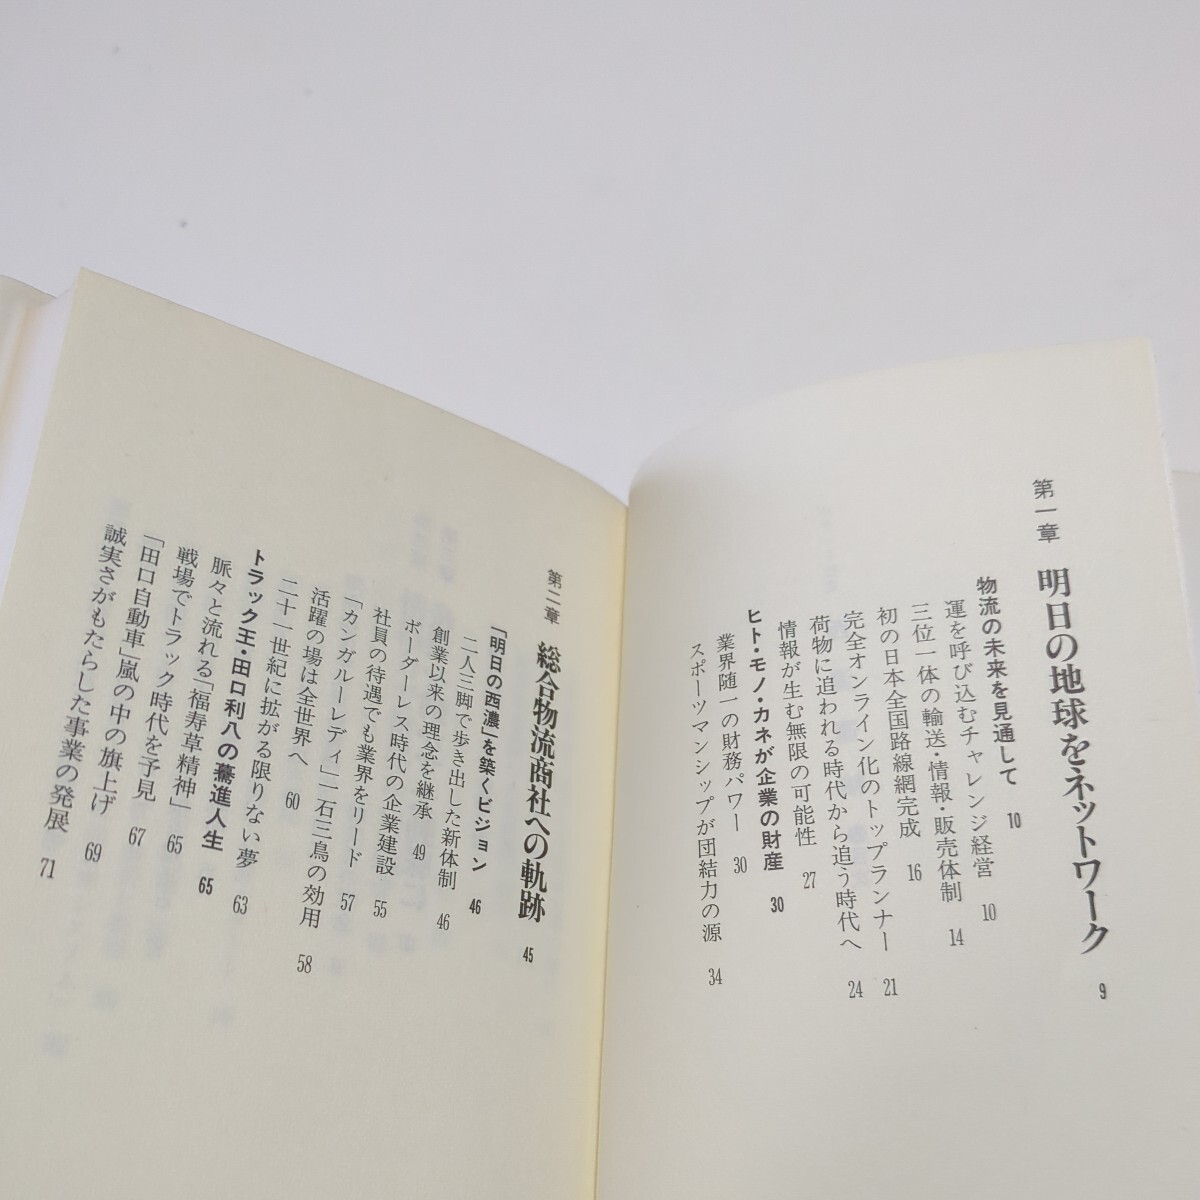 第一章 明日の地球をネットワーク 9
物流の未来を見通して 10
運を呼び込むチャレンジ経営 10
三位一体の輸送・情報・販売体制 14
初の日本全国路線網完成 16
完全オンライン化のトップランナー 21
荷物に追われる時代から追う時代へ 24
情報が生む無限の可能性 27
ヒト・モノ・カネが企業の財産 30
業界随一の財務パワー 30
スポーツマンシップが団結力の源 34
第二章 総合物流商社への軌跡 45
「明日の西濃」を築くビジョン 46
二人三脚で歩き出した新体制 46
創業以来の理念を継承 49
ボーダーレス時代の企業建設 55
社員の待遇でも業界をリード 57
「カンガルーレディ」一石三鳥の効用 58
活躍の場は全世界へ 60
二十一世紀に拡がる限りない夢 63
トラック王・田口利八の驀進人生 65
脈々と流れる「福寿草精神」 65
戦場でトラック時代を予見 67
「田口自動車」嵐の中の旗上げ 69
誠実さがもたらした事業の発展 71